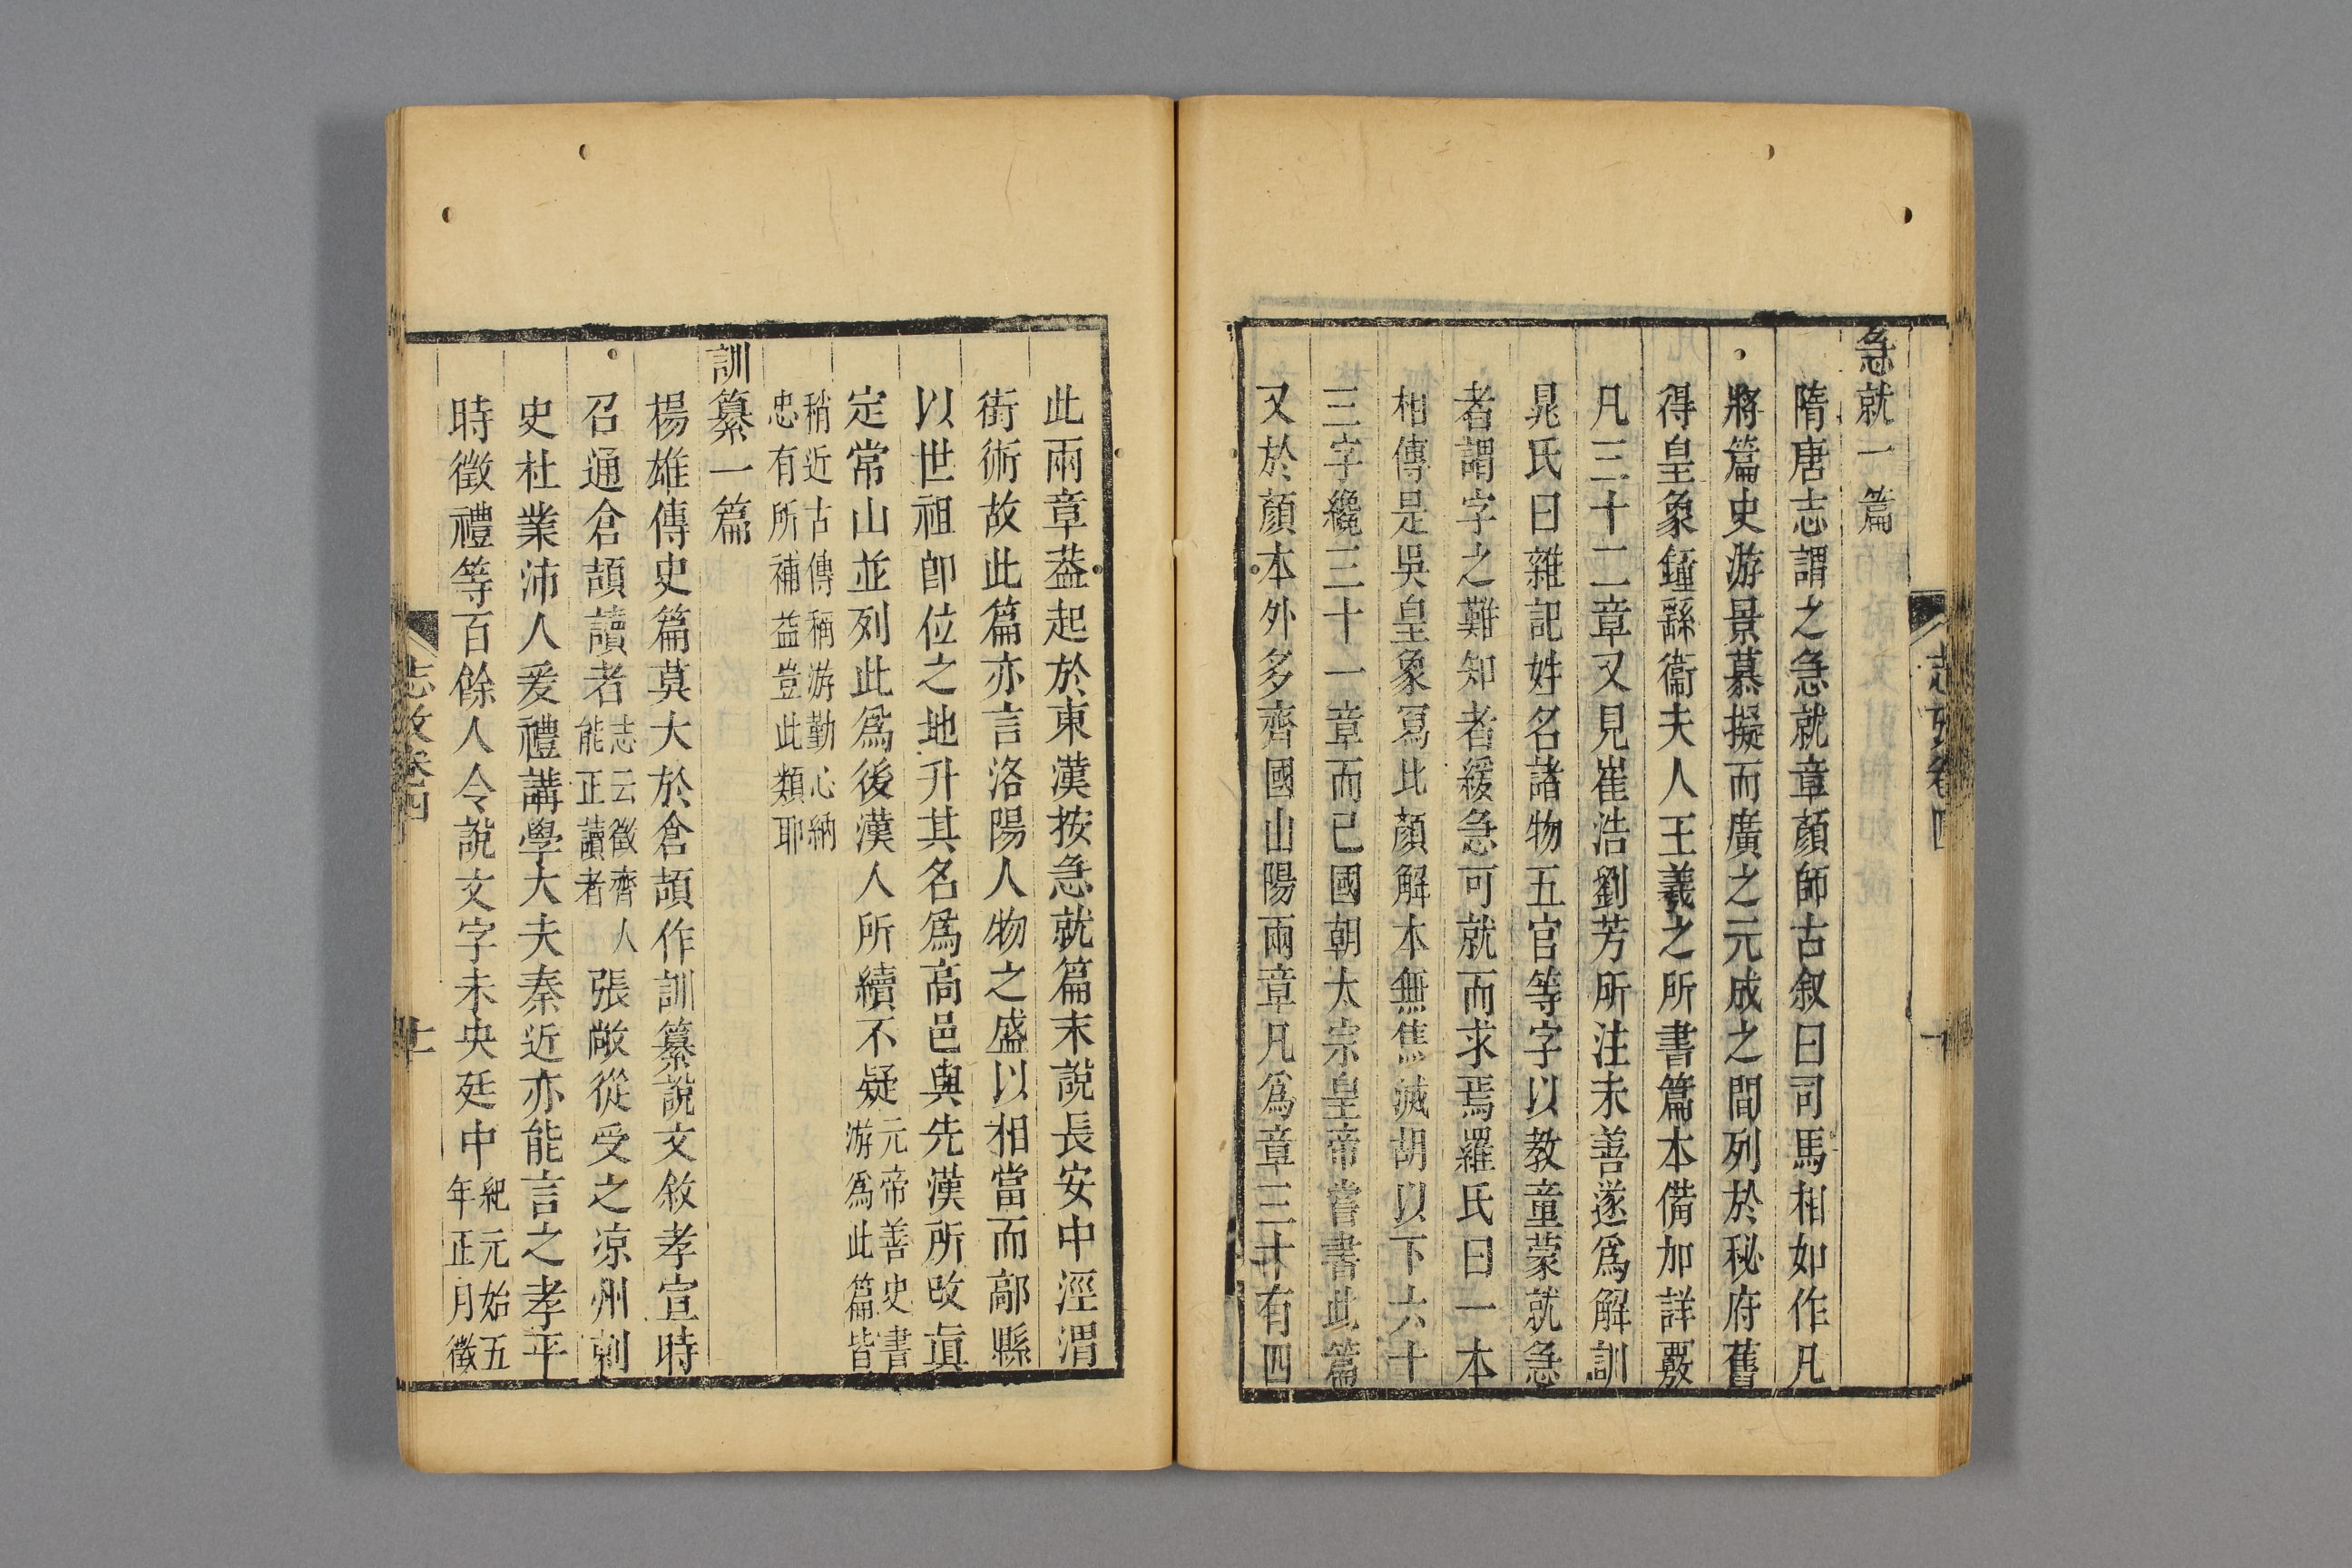 急就一篇
隋唐志謂之急就章顏師古叙曰司馬相如作凡
將篇史游景慕擬而廣之元成之間列於秘府舊
得皇象鍾繇衞夫人王羲之所書篇本備加詳覈
凡三十二章又見崔浩劉芳所注未善遂爲解訓
晁氏曰雜記姓名諸物五官等字以教童蒙就急
者謂字之難知者緩急可就而求焉羅氏曰一本
相傳是吳皇象寫比顏解本無焦滅胡以下六十
三字纔三十一章而已國朝太宗皇帝嘗書此篇
又於顏本外多齊國山陽兩章凡爲章三十有四
此兩章葢起於東漢按急就篇末說長安中涇渭
街術故此篇亦言洛陽人物之盛以相當而鄗縣
以世祖卽位之地升其名爲高邑與先漢所改眞
定常山並列此爲後漢人所續不疑元帝善史書
游爲此篇皆
稍近古傳稱游勤心納
忠有所補益豈此類耶
訓纂一篇
楊雄傳史篇莫大於倉頡作訓纂說文敘孝宣時
召通倉頡讀者志云徵齊人
能正讀者張敞從受之凉州刺
史杜業沛人爰禮講學大夫秦近亦能言之孝平
時徵禮等百餘人令說文字未央廷中紀元始五
年正月徵
志攷卷四